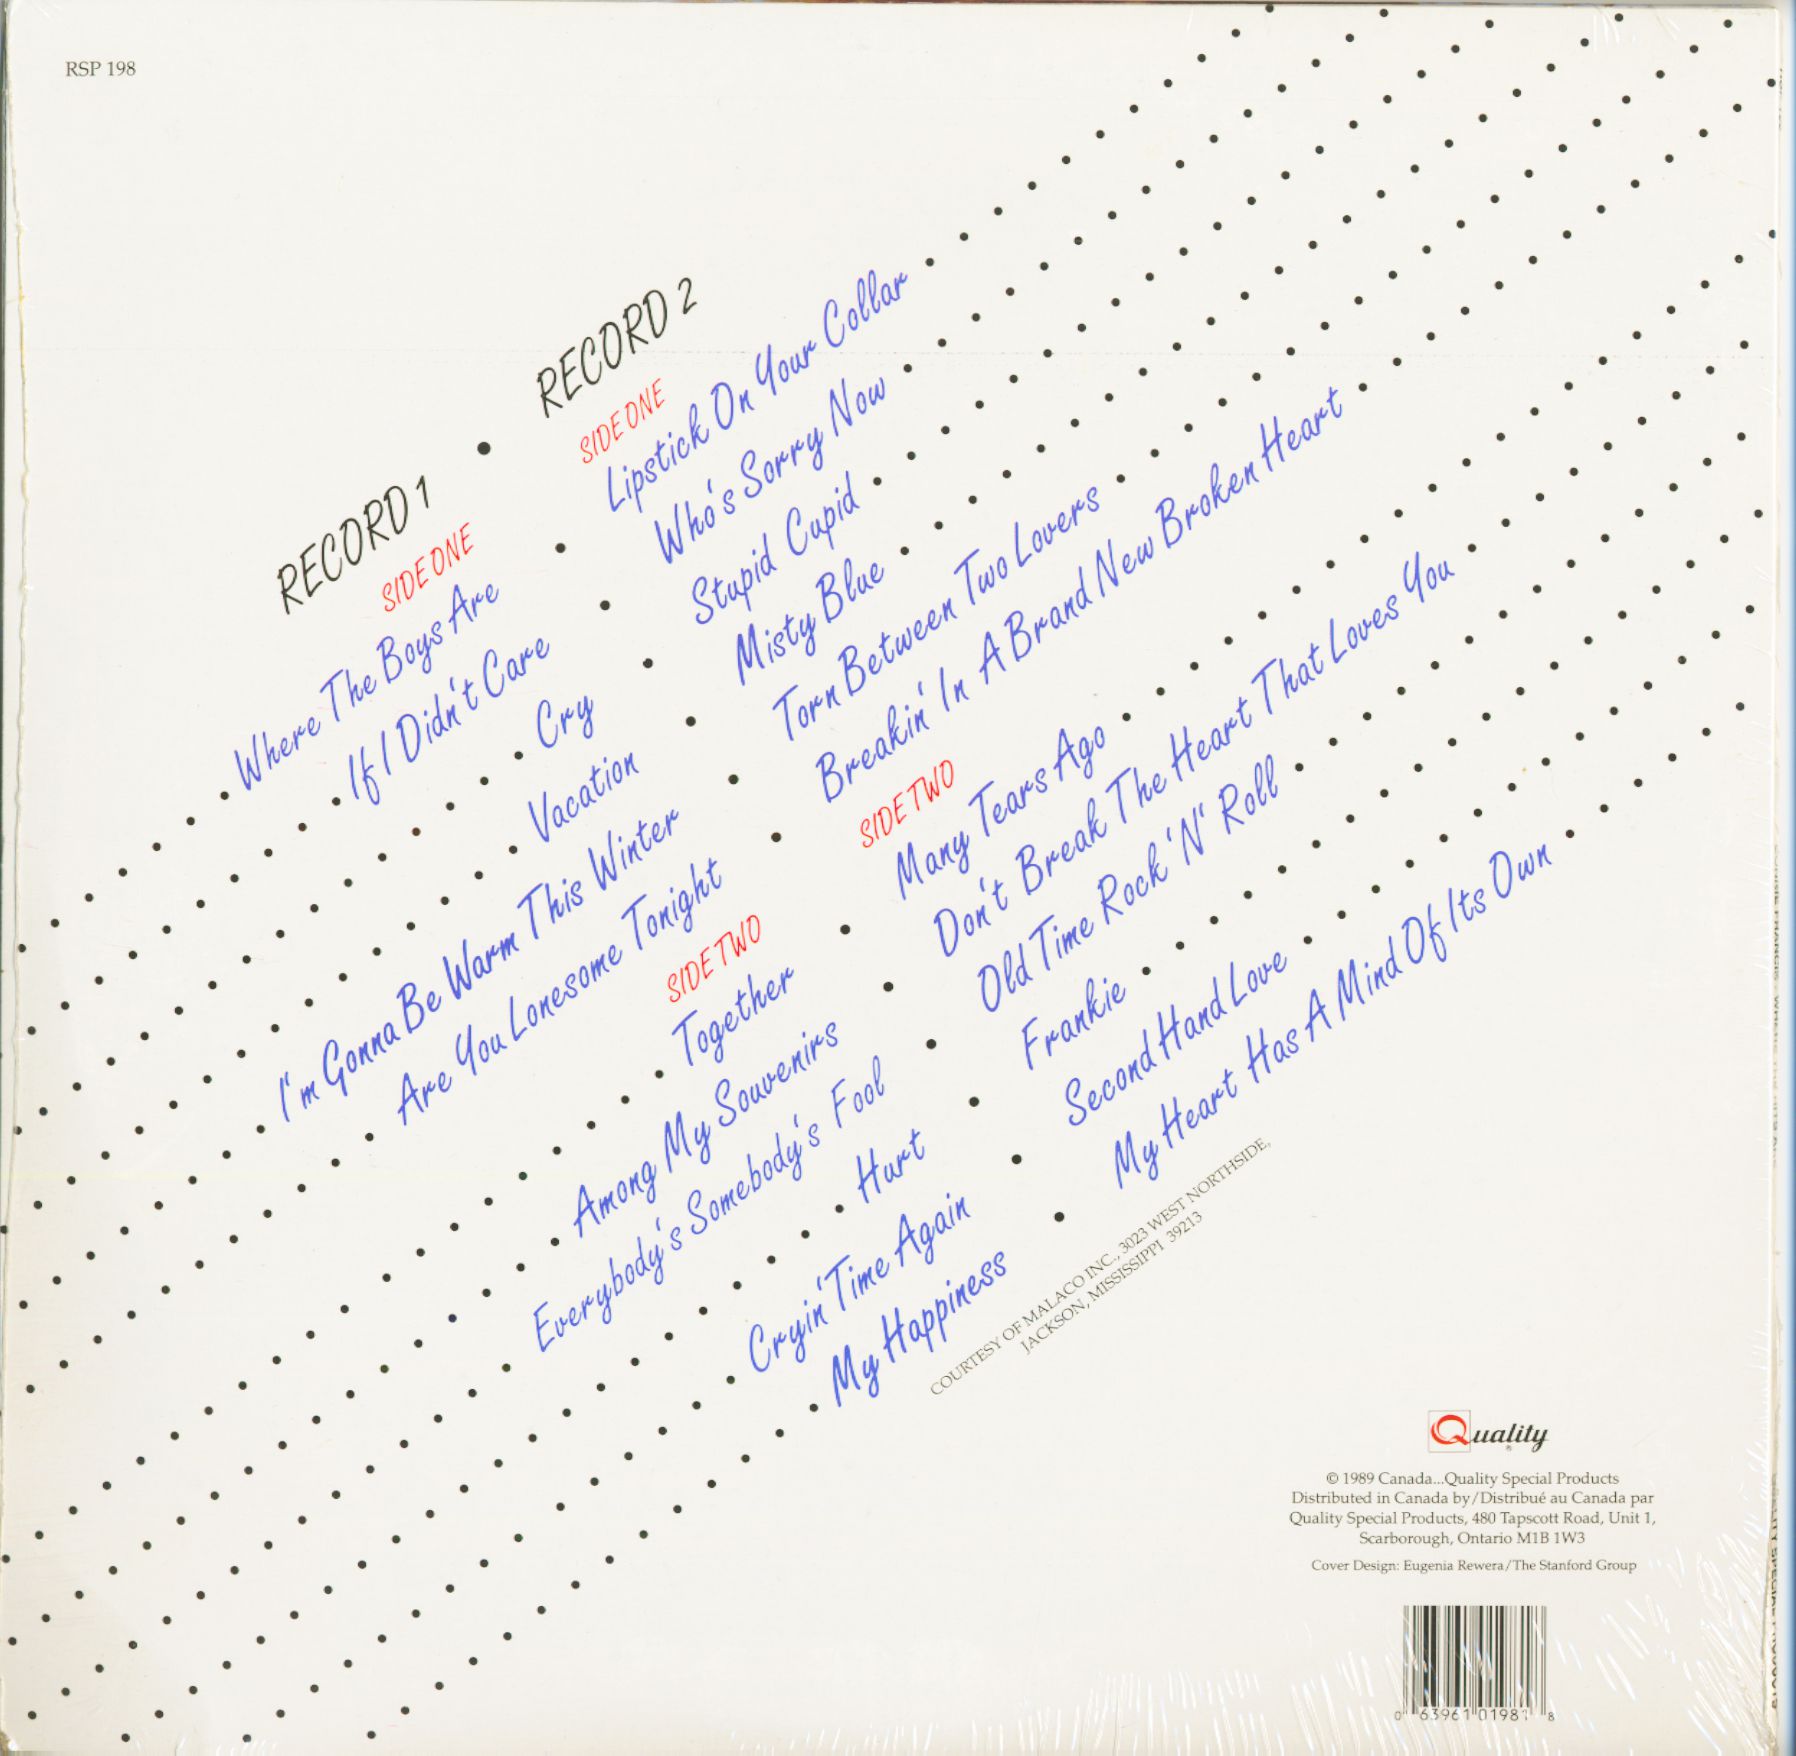 RSP 198
RECORD 1
SIDE ONE
Where The Boys Are
If I Didn't Care
Cry
Vacation
I'm Gonna Be Warm This Winter
Are You Lonesome Tonight
SIDE TWO
Together
Among My Souvenirs
Everybody's Somebody's Fool
Hurt
Cryin' Time Again
My Happiness
RECORD 2
SIDE ONE
Lipstick On Your Collar
Who's Sorry Now
Stupid Cupid
Misty Blue
Torn Between Two Lovers
Breakin' In A Brand New Broken Heart
SIDE TWO
Many Tears Ago
Don't Break The Heart That Loves You
Old Time Rock 'N' Roll
Frankie
Second Hand Love
My Heart Has A Mind Of Its Own
COURTESY OF MALACO INC., 3023 WEST NORTHSIDE,
JACKSON, MISSISSIPPI 39213
Quality
© 1989 Canada...Quality Special Products
Distributed in Canada by/Distribué au Canada par
Quality Special Products, 480 Tapscott Road, Unit 1,
Scarborough, Ontario M1B 1W3
Cover Design: Eugenia Rewera/The Stanford Group
0 63961 01981 8